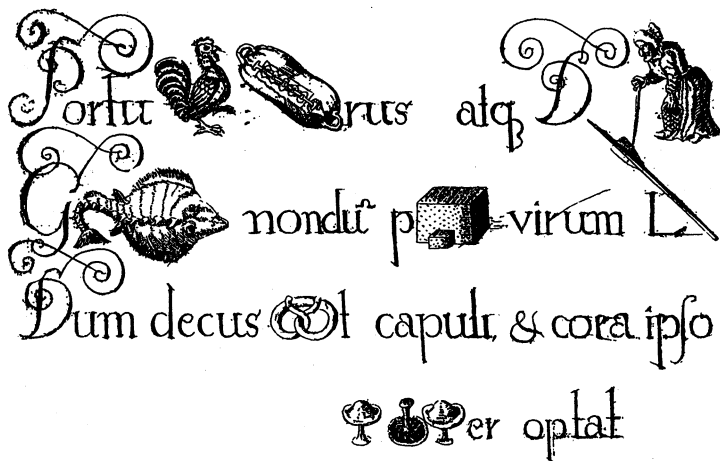 Portu rus atqꝫ D
G nondu͂ p virum L
Dum decus t capuli, & cora ipſo
er optat